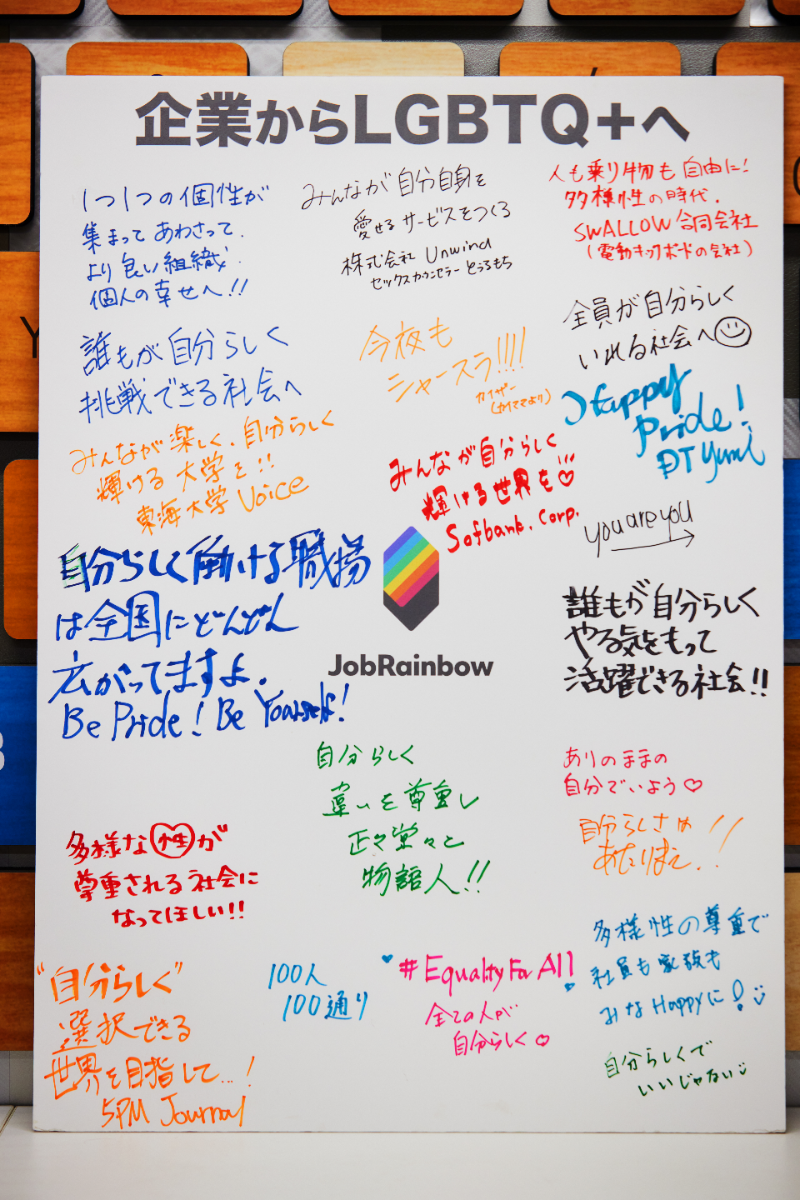 企業からLGBTQ+へ
1つ1つの個性が
集まってあわさって、
より良い組織、
個人の幸せへ!!
みんなが自分自身を
愛せるサービスをつくる
株式会社 Unwind
セックスカウンセラー とうるもち
人も乗り物も自由に!
多様性の時代.
SWALLOW合同会社
(電動キックボードの会社)
誰もが自分らしく
挑戦できる社会へ
今夜も
シャースラ!!!!
全員が自分らしく
いれる社会へ
Happy
Pride!
DT Yumi
みんなが楽しく、自分らしく
輝ける大学を!!
東海大学 Voice
みんなが自分らしく
輝ける世界を♡
Sofbank. Corp.
you are you
自分らしく働ける職場
は全国にどんどん
広がってますよ.
Be Pride! Be Yourself!
JobRainbow
誰もが自分らしく
やる気をもって
活躍できる社会!!
自分らしく
違いを尊重し
正々堂々と
物語人!!
ありのままの
自分でいよう♡
自分らしさ
あたりまえ!!
多様な性が
尊重される社会に
なってほしい!!
"自分らしく"
選択できる
世界を目指して...!
5PM Journal
100人
100通り
#Equality For All
全ての人が
自分らしく♡
多様性の尊重で
社員も家族も
みなHappyに!
自分らしくで
いいじゃない